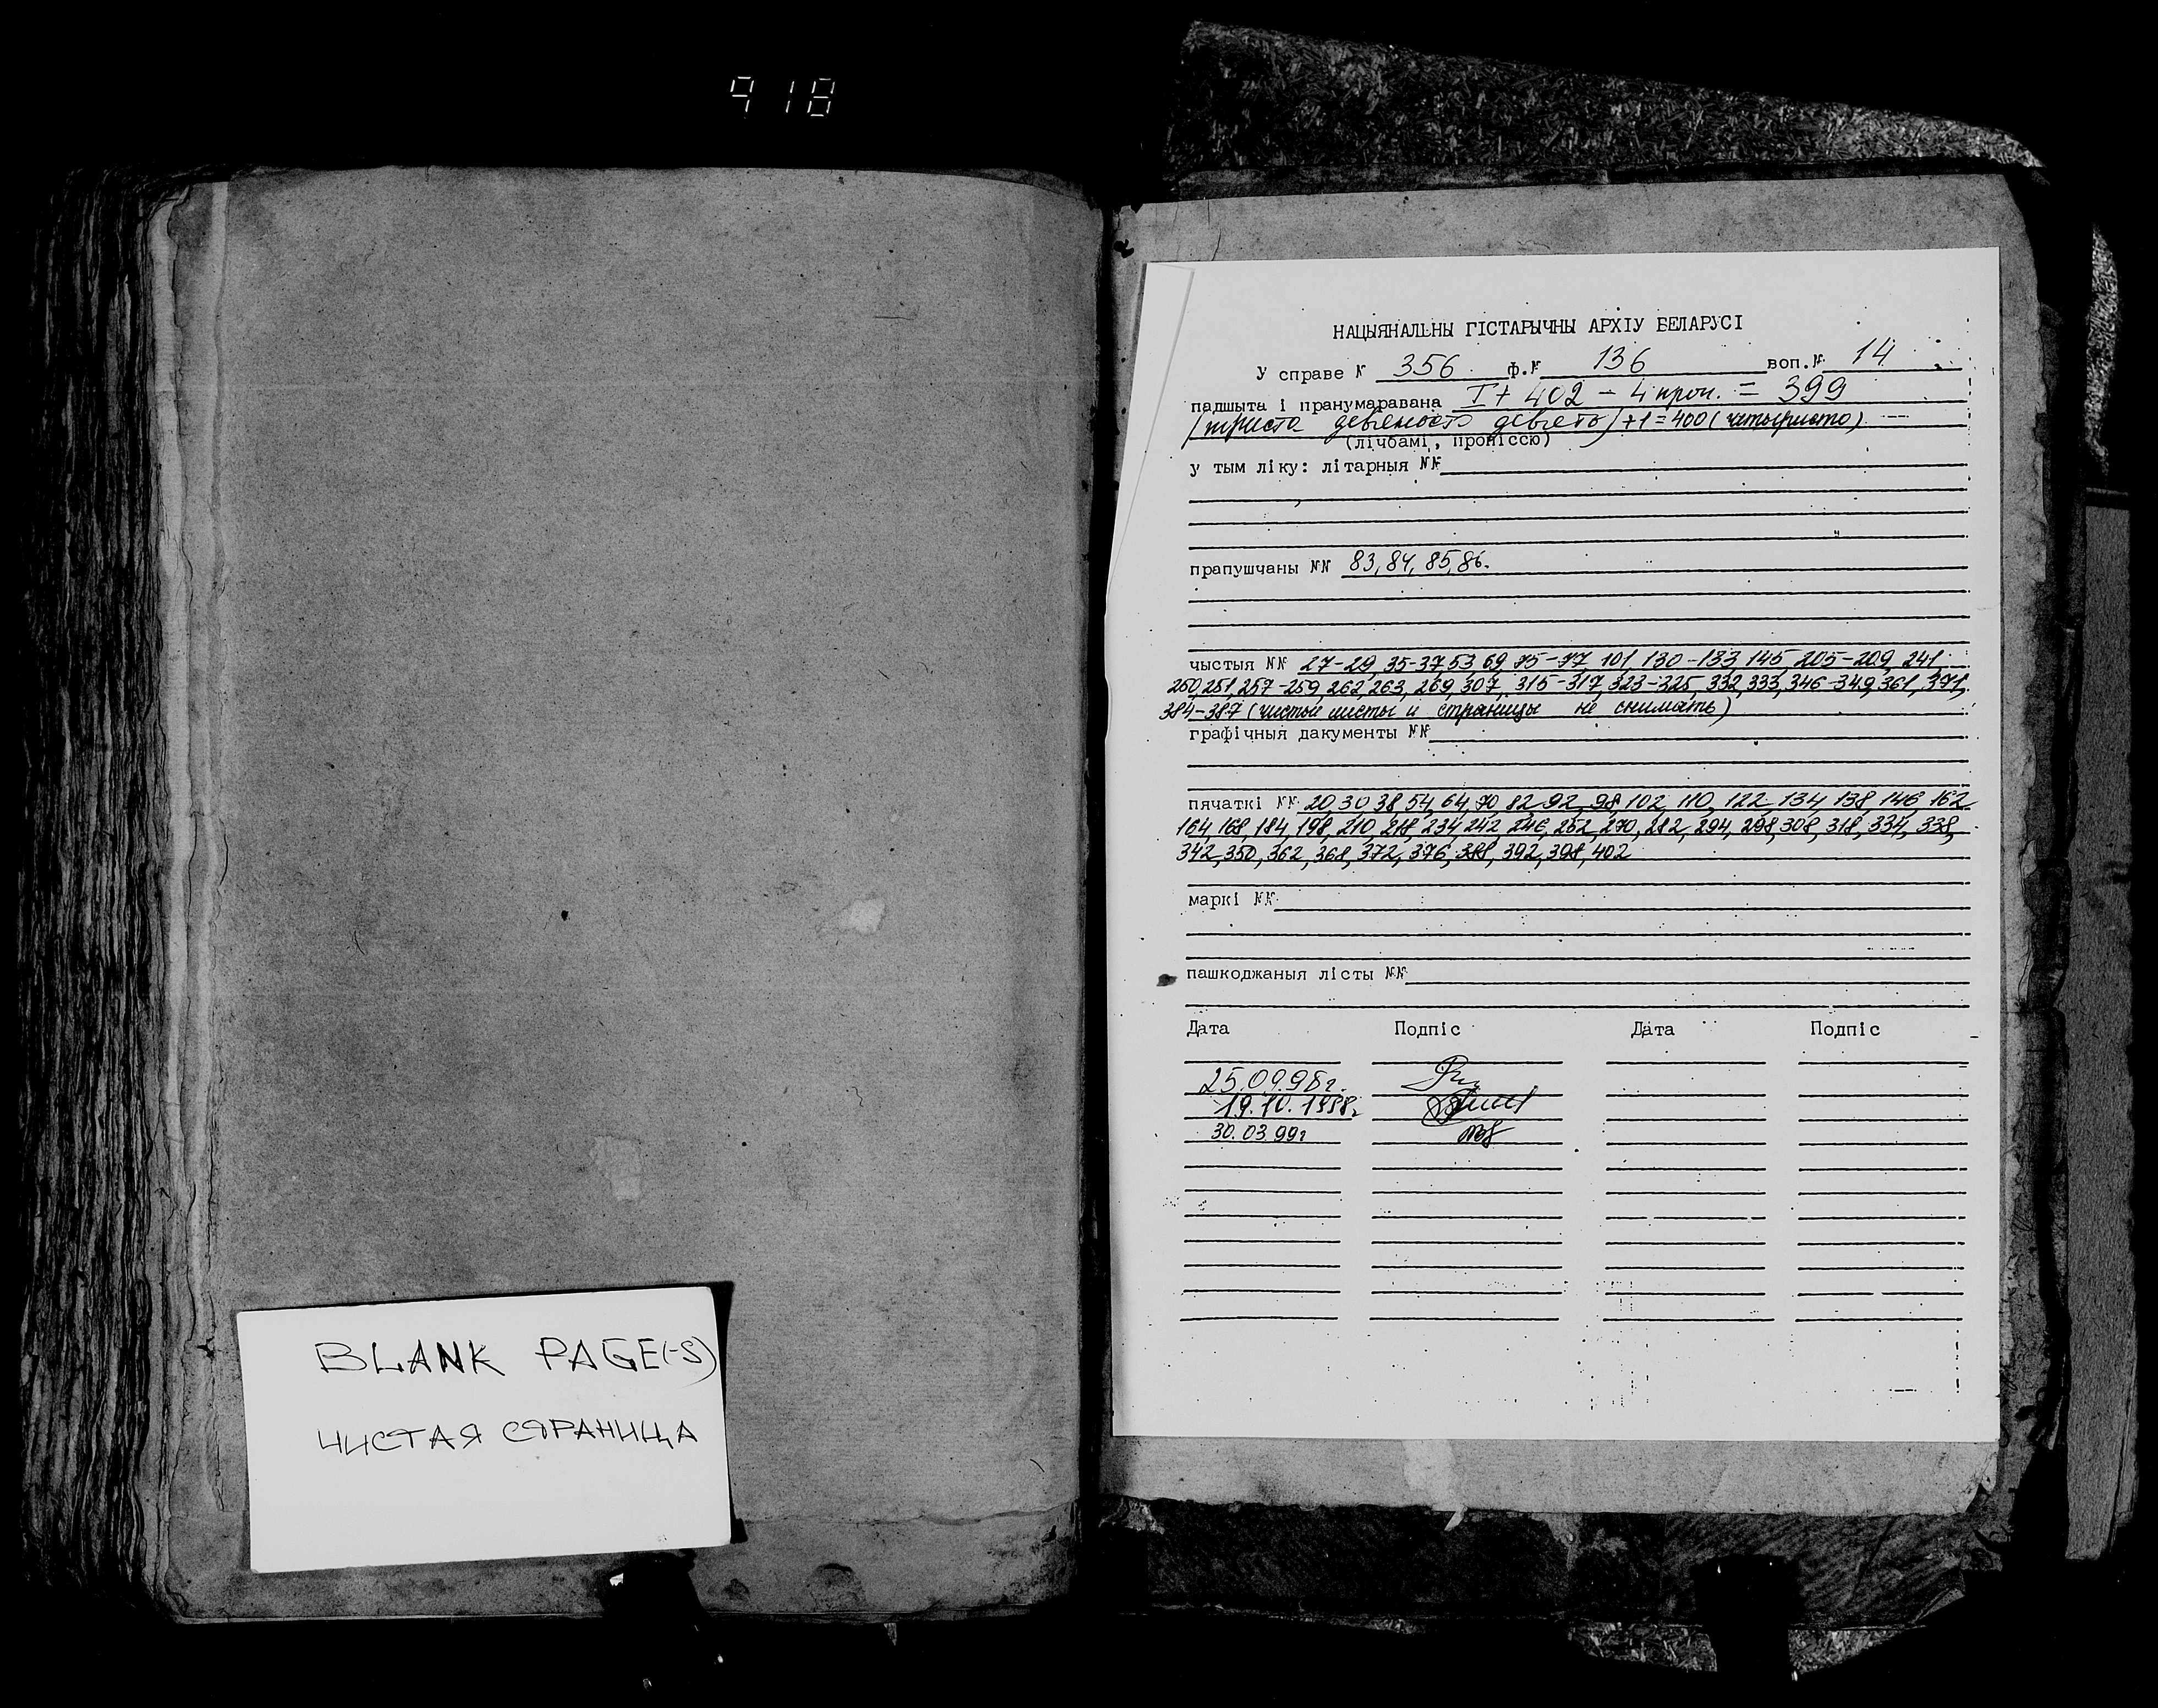 918
BLANK PAGE(-S)
ЧИСТАЯ СТРАНИЦА
НАЦЫЯНАЛЬНЫ ГІСТАРЫЧНЫ АРХІУ БЕЛАРУСІ
У справе № 356 ф.№ 136 воп.№ 14
падшыта і пранумаравана I + 402 – 4 проп. = 399
(триста девяносто девять) +1=400 (четыреста)
(лічбамі, пропіссю)
у тым ліку: літарныя №№
прапушчаны №№ 83, 84, 85, 86.
чыстыя №№ 27-29, 35-37, 53, 69, 75-77, 101, 130-133, 145, 205-209, 241,
250, 251, 257-259, 262, 263, 269, 307, 315-317, 323-325, 332, 333, 346-349, 361, 371,
384-387 (чистые листы и страницы не снимать)
графічныя дакументы №№
пячаткі №№ 20, 30, 38, 54, 64, 70, 82, 92, 98, 102, 110, 122, 134, 138, 146, 162
164, 168, 184, 198, 210, 218, 234, 242, 246, 252, 270, 282, 294, 298, 308, 318, 334, 338,
342, 350, 362, 368, 372, 376, 388, 392, 398, 402
маркі №№
пашкоджаныя лісты №№
Дата Подпіс Дата Подпіс
25.09.98г.
19.10.1998г
30.03.99г